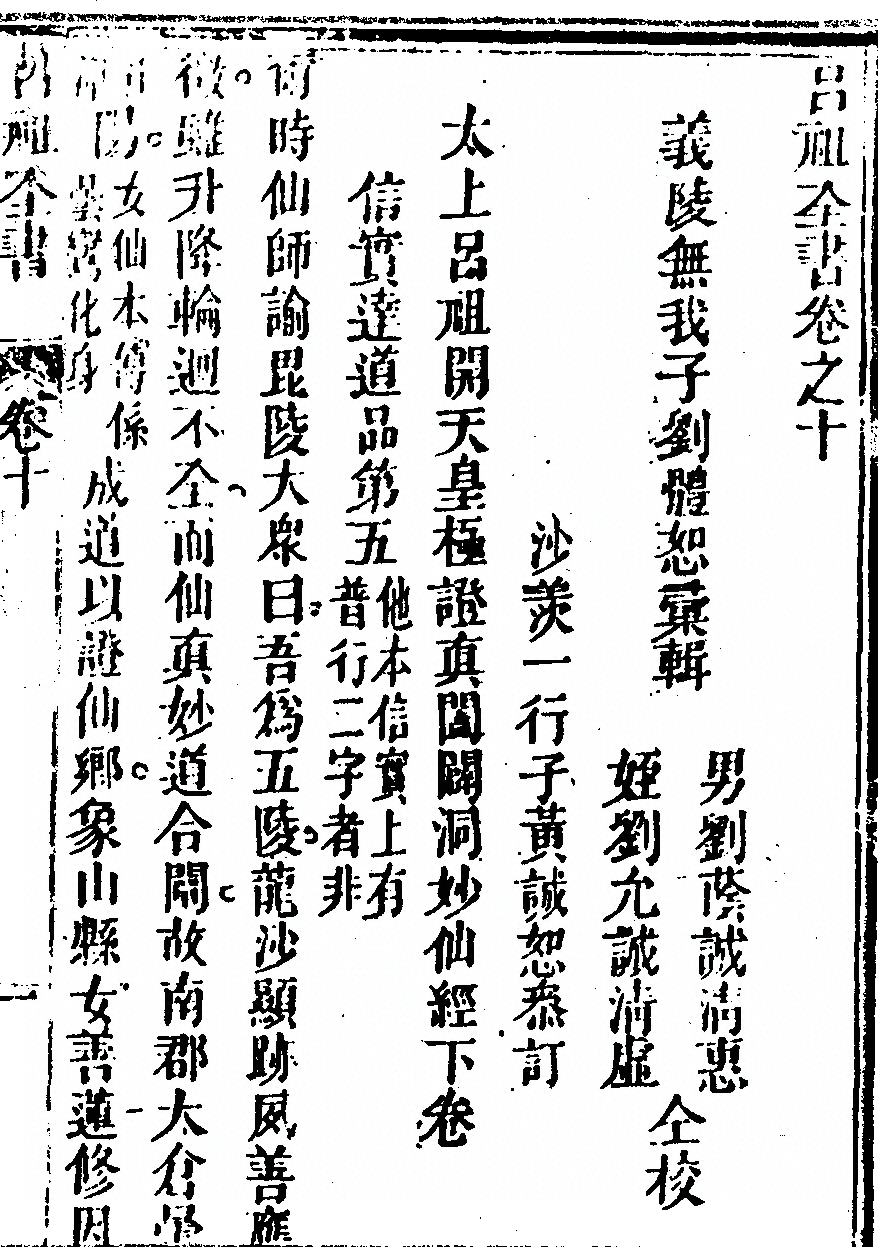 呂祖全書卷之十
義陵無我子劉體恕彙輯
男劉蔭誠清惠
姪劉允誠清虛
仝校
沙羨一行子黃誠恕叅訂
太上呂祖開天皇極證真闡闢洞妙仙經下卷
信實達道品第五
他本信實上有
普行二字者非
爾時仙師諭毘陵大衆曰吾爲五陵龍沙顯跡夙善應
微雖升降輪迴不全而仙真妙道合闢故南郡太倉
陽女仙本傳係
化身
成道以證仙鄉象山縣女善蓮修因
呂祖全書
卷十
一